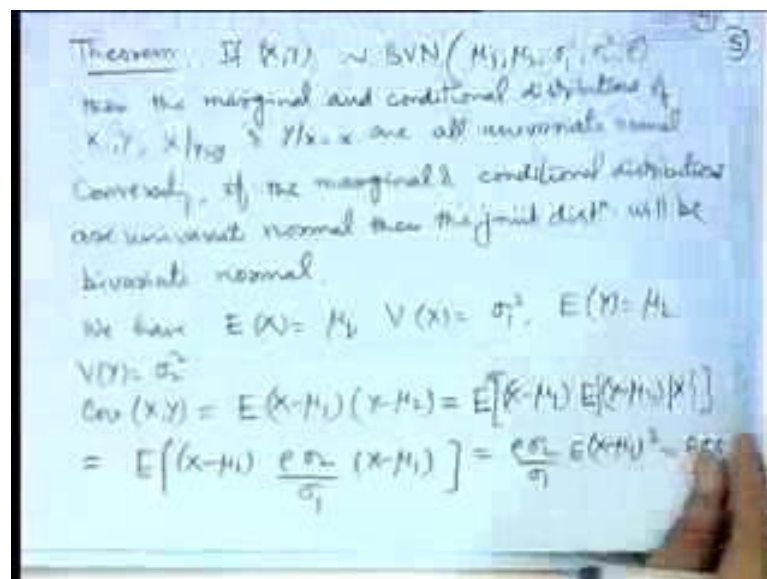 5
Theorem. If (X,Y) ~ BVN(μ₁, μ₂, σ₁², σ₂², ρ)
then the marginal and conditional distributions of
X, Y, X|Y=y & Y|X=x are all univariate normal
Conversely, if the marginal & conditional distributions
are univariate normal then the joint distⁿ. will be
bivariate normal.
We have E(X) = μ₁, V(X) = σ₁², E(Y) = μ₂
V(Y) = σ₂²
Cov(X,Y) = E(X-μ₁)(Y-μ₂) = E[(X-μ₁) E{(Y-μ₂)|X}]
= E[(X-μ₁) ρσ₂/σ₁ (X-μ₁)] = ρσ₂/σ₁ E(X-μ₁)² =